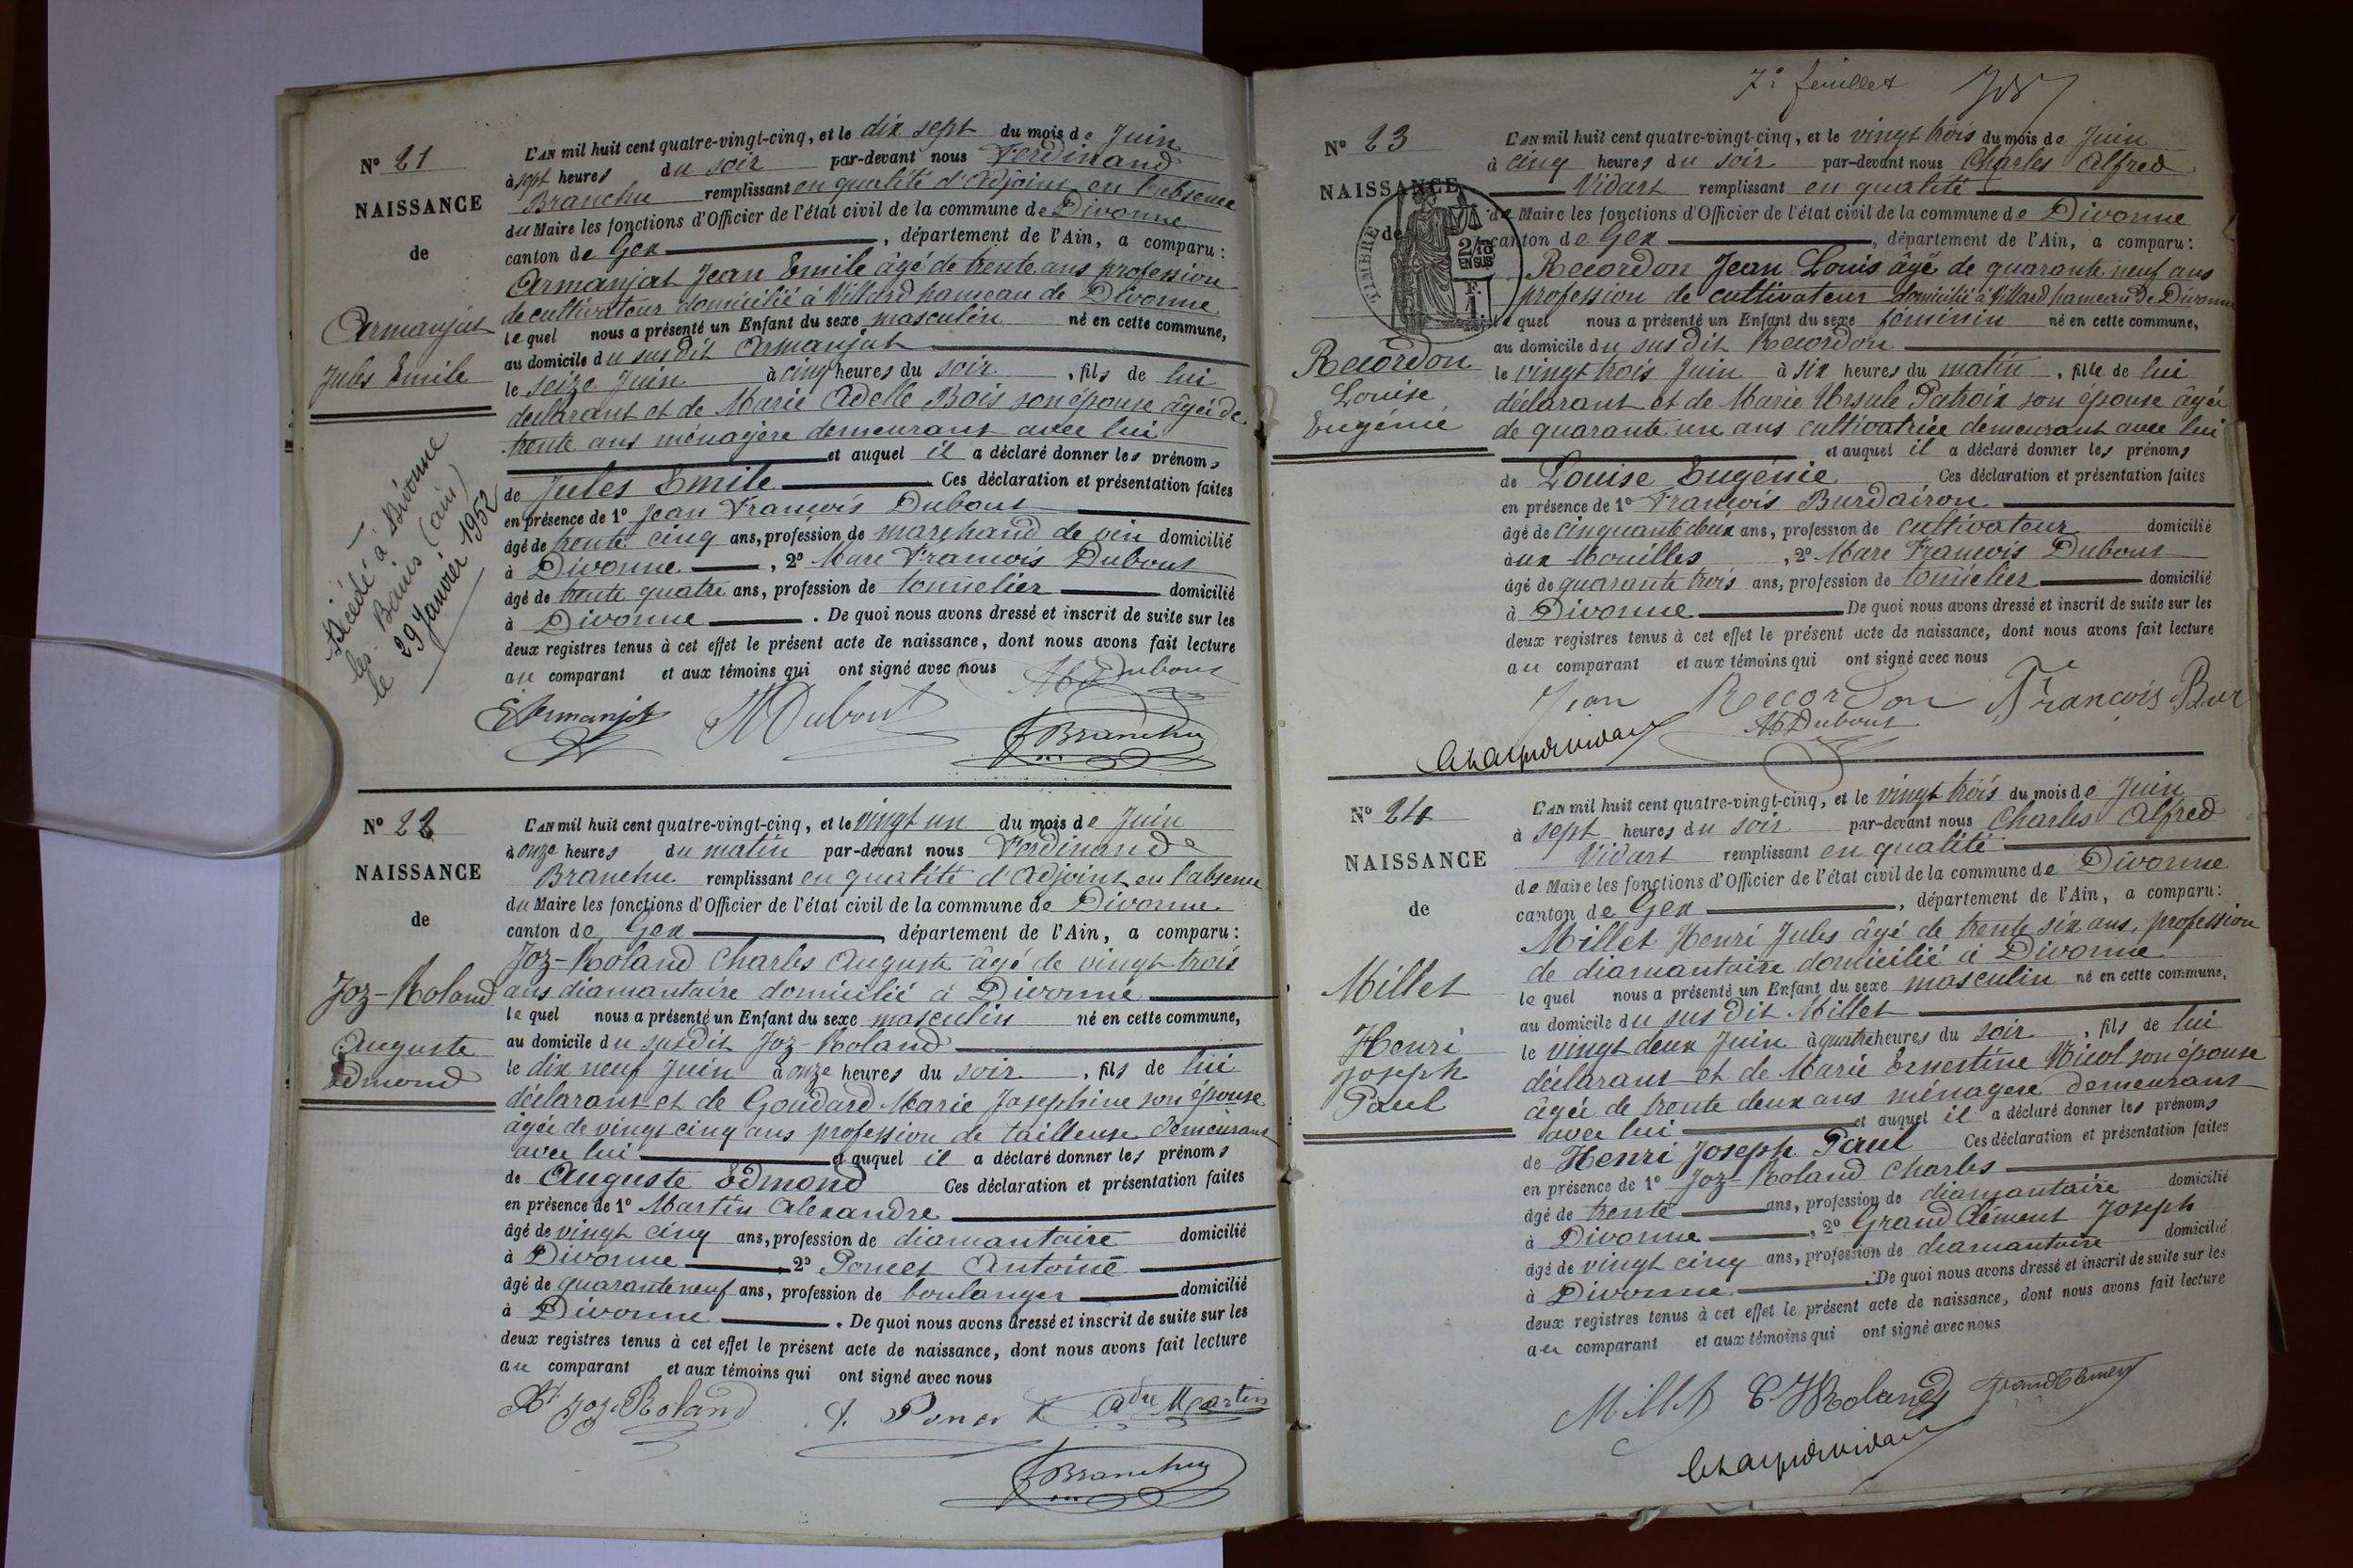 N° 21
NAISSANCE
de
Armanjat
Jules Emile
Décédé à Divonne
les-Bains (ain)
le 29 Janvier 1952
L'AN mil huit cent quatre-vingt-cinq, et le dix sept du mois de Juin
à sept heures du soir par-devant nous Ferdinand
Branchu remplissant en qualité d'Adjoint en l'absence
du Maire les fonctions d'Officier de l'état civil de la commune de Divonne
canton de Gex, département de l'Ain, a comparu:
Armanjat Jean Emile âgé de trente ans profession
de cultivateur domicilié à Villard hameau de Divonne
lequel nous a présenté un Enfant du sexe masculin né en cette commune,
au domicile du susdit Armanjat
le seize Juin à cinq heures du soir, fils de lui
déclarant et de Marie Adelle Bois son épouse âgée de
trente ans ménagère demeurant avec lui
et auquel il a déclaré donner les prénoms
de Jules Emile Ces déclaration et présentation faites
en présence de 1° Jean François Dubout
âgé de trente cinq ans, profession de marchand de vin domicilié
à Divonne, 2° Marc François Dubout
âgé de trente quatre ans, profession de tonnelier domicilié
à Divonne. De quoi nous avons dressé et inscrit de suite sur les
deux registres tenus à cet effet le présent acte de naissance, dont nous avons fait lecture
au comparant et aux témoins qui ont signé avec nous
MF Dubout
E Armanjat Dubout
F Branchu
N° 22
NAISSANCE
de
Joz-Roland
Auguste
Edmond
L'AN mil huit cent quatre-vingt-cinq, et le vingt un du mois de Juin
à onze heures du matin par-devant nous Ferdinand
Branchu remplissant en qualité d'Adjoint en l'absence
du Maire les fonctions d'Officier de l'état civil de la commune de Divonne
canton de Gex, département de l'Ain, a comparu:
Joz-Roland Charles Auguste âgé de vingt trois
ans diamantaire domicilié à Divonne
lequel nous a présenté un Enfant du sexe masculin né en cette commune,
au domicile du susdit Joz-Roland
le dix neuf Juin à onze heures du soir, fils de lui
déclarant et de Goudard Marie Josephine son épouse
âgée de vingt cinq ans profession de tailleuse demeurant
avec lui et auquel il a déclaré donner les prénoms
de Auguste Edmond Ces déclaration et présentation faites
en présence de 1° Martin Alexandre
âgé de vingt cinq ans, profession de diamantaire domicilié
à Divonne 2° Poncet Antoine
âgé de quarante neuf ans, profession de boulanger domicilié
à Divonne. De quoi nous avons dressé et inscrit de suite sur les
deux registres tenus à cet effet le présent acte de naissance, dont nous avons fait lecture
au comparant et aux témoins qui ont signé avec nous
Joz-Roland A. Poncet Adre Martin
F Branchu
7e feuillet
N° 23
NAISSANCE
de
TIMBRE
2/10
EN SUS
F.
1.
Recordon
Louise
Eugénie
L'AN mil huit cent quatre-vingt-cinq, et le vingt trois du mois de Juin
à cinq heures du soir par-devant nous Charles Alfred
Vidart remplissant en qualité
de Maire les fonctions d'Officier de l'état civil de la commune de Divonne
canton de Gex, département de l'Ain, a comparu:
Recordon Jean Louis âgé de quarante neuf ans
profession de cultivateur domicilié à Villard hameau de Divonne
lequel nous a présenté un Enfant du sexe féminin né en cette commune,
au domicile du susdit Recordon
le vingt trois Juin à six heures du matin, fille de lui
déclarant et de Marie Ursule Patroix son épouse âgée
de quarante un ans cultivatrice demeurant avec lui
et auquel il a déclaré donner les prénoms
de Louise Eugénie Ces déclaration et présentation faites
en présence de 1° François Burdairon
âgé de cinquante deux ans, profession de cultivateur domicilié
à ux Mouilles, 2° Marc François Dubout
âgé de quarante trois ans, profession de tonnelier domicilié
à Divonne De quoi nous avons dressé et inscrit de suite sur les
deux registres tenus à cet effet le présent acte de naissance, dont nous avons fait lecture
au comparant et aux témoins qui ont signé avec nous
Jean Recordon François Bur
MF Dubout
N° 24
NAISSANCE
de
Millet
Henri
Joseph
Paul
L'AN mil huit cent quatre-vingt-cinq, et le vingt trois du mois de Juin
à sept heures du soir par-devant nous Charles Alfred
Vidart remplissant en qualité
de Maire les fonctions d'Officier de l'état civil de la commune de Divonne
canton de Gex, département de l'Ain, a comparu:
Millet Henri Jules âgé de trente six ans, profession
de diamantaire domicilié à Divonne
lequel nous a présenté un Enfant du sexe masculin né en cette commune,
au domicile du susdit Millet
le vingt deux Juin à quatre heures du soir, fils de lui
déclarant et de Marie Ernestine Nicol son épouse
âgée de trente deux ans ménagère demeurant
avec lui et auquel il a déclaré donner les prénoms
de Henri Joseph Paul Ces déclaration et présentation faites
en présence de 1° Joz-Roland Charles
âgé de trente ans, profession de diamantaire domicilié
à Divonne, 2° Grand Clément Joseph
âgé de vingt cinq ans, profession de diamantaire domicilié
à Divonne. De quoi nous avons dressé et inscrit de suite sur les
deux registres tenus à cet effet le présent acte de naissance, dont nous avons fait lecture
au comparant et aux témoins qui ont signé avec nous
Millet C. J Roland GrandClément